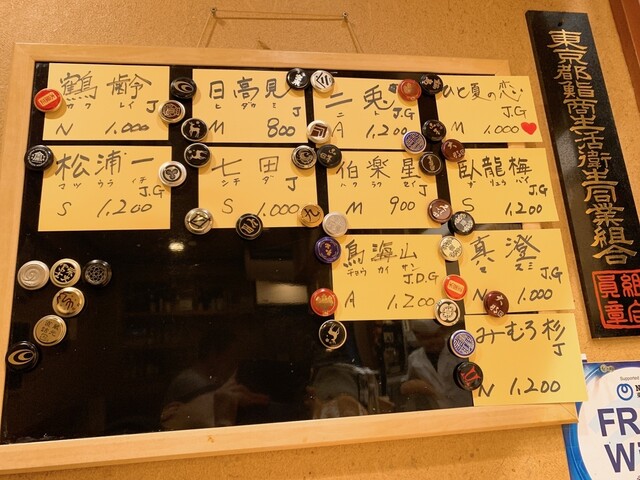 鶴齢
カクレイ J
N 1,000
日高見
ヒダカミ J
M 800
二兎
ニト J.G
A 1,200
ひと夏の恋
J.G
M 1,000
松浦一
マツウライチ
J.G
S 1,200
七田
シチダ J
S 1,000
伯楽星
ハクラクセイ J
M 900
臥龍梅
ガリュウバイ J.G
S 1,200
鳥海山
チョウカイサン
J.D.G
A 1,200
真澄
マスミ J.G
N 1,000
みむろ杉
J
N 1,200
東京都鮨商生活衛生同業組合
組合
員章
Supported
FR
Wi